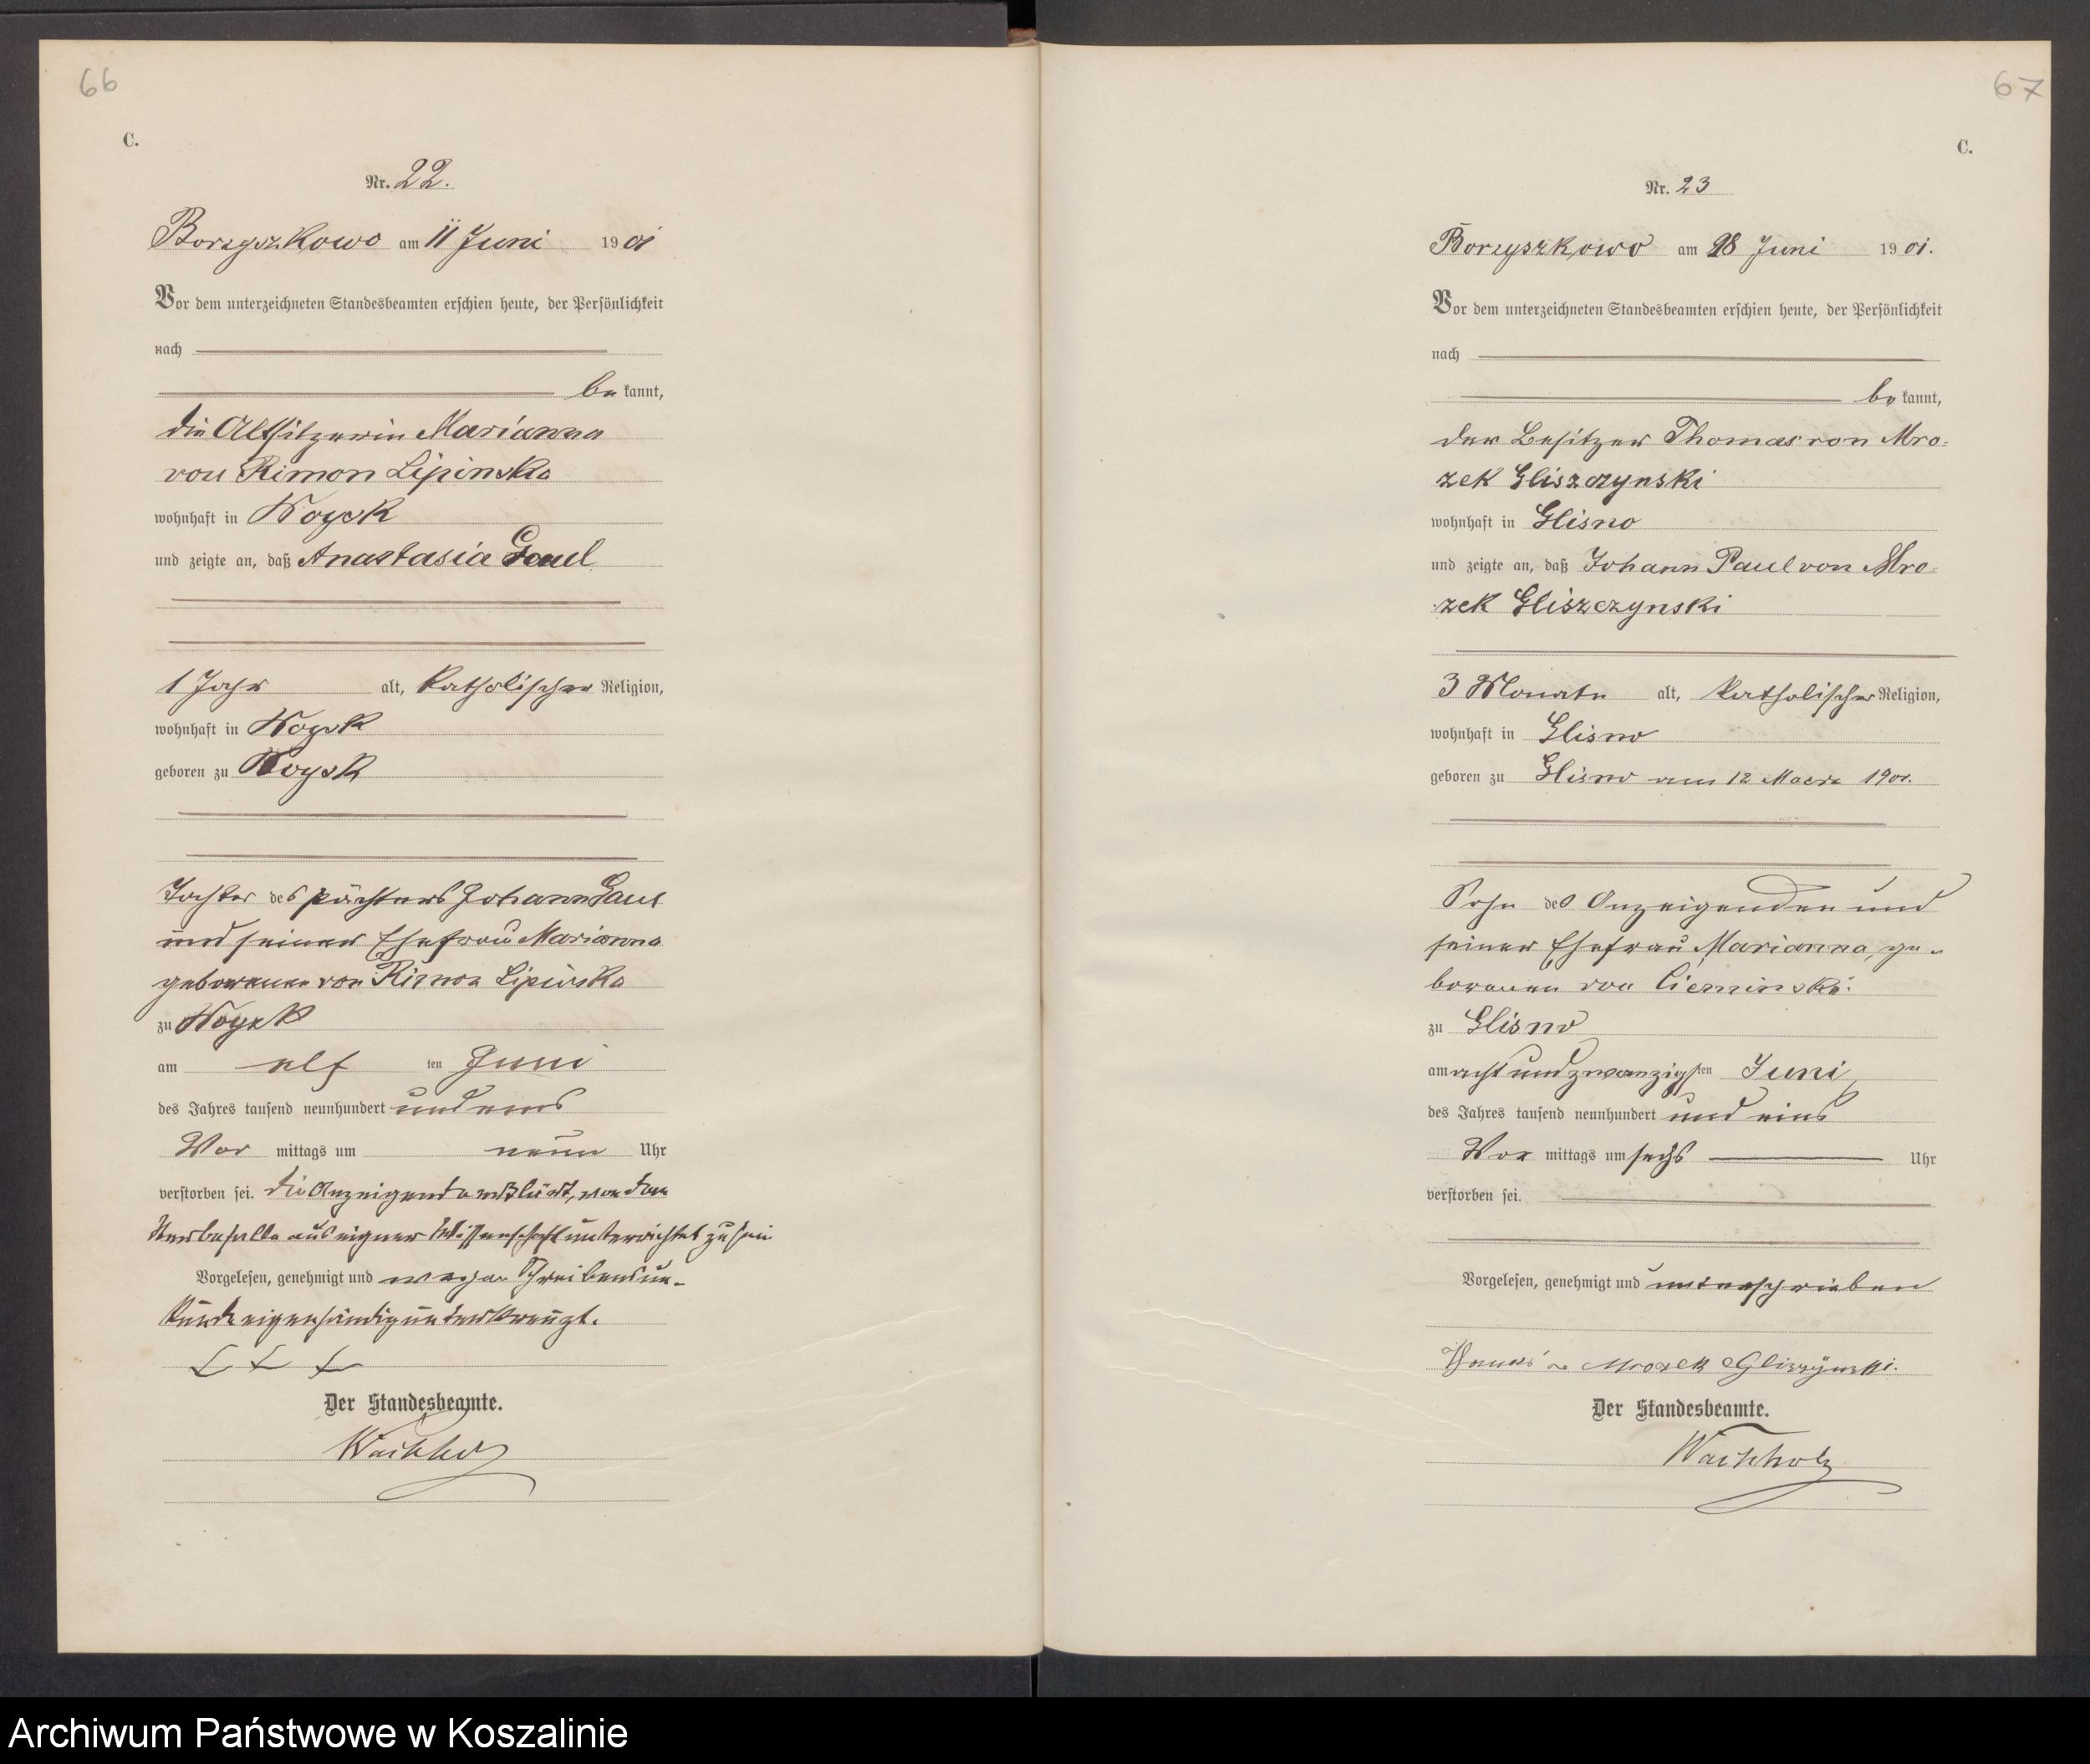 66
C.
Nr. 22.
Borzyszkowo am 11 Juni 1901
Vor dem unterzeichneten Standesbeamten erschien heute, der Persönlichkeit
nach
be kannt,
die Altsitzerin Marianna
von Kimon Lipinska
wohnhaft in
und zeigte an, daß Anastasia Gaul
1 Jahr alt, katholischer Religion,
wohnhaft in
geboren zu
Tochter des Pächters Johann Gaul
und seiner Ehefrau Marianna
geborenen von Lipinska
zu
am elf ten Juni
des Jahres tausend neunhundert und eins
Vor mittags um neun Uhr
verstorben sei. Die Anzeigende erklärt, von dem
Sterbefalle aus eigner Wissenschaft unterrichtet zu sein
Vorgelesen, genehmigt und wegen Schreibensun-
kunde eigenhändig unterkreuzt.
+ + +
Der Standesbeamte.
Wachholz
67
C.
Nr. 23
Borzyszkowo am 28 Juni 1901.
Vor dem unterzeichneten Standesbeamten erschien heute, der Persönlichkeit
nach
be kannt,
der Besitzer Thomas von Mro-
zek Gliszczynski
wohnhaft in Glisno
und zeigte an, daß Johann Paul von Mro-
zek Gliszczynski
3 Monate alt, katholischer Religion,
wohnhaft in Glisno
geboren zu Glisno am 12 Maerz 1901.
Sohn des Anzeigenden und
seiner Ehefrau Marianna, ge-
borenen von Cieminski
zu Glisno
am acht und zwanzigsten Juni
des Jahres tausend neunhundert und eins
Vor mittags um sechs Uhr
verstorben sei.
Vorgelesen, genehmigt und unterschrieben
Mrozek Gliszczynski.
Der Standesbeamte.
Wachholz
Archiwum Państwowe w Koszalinie